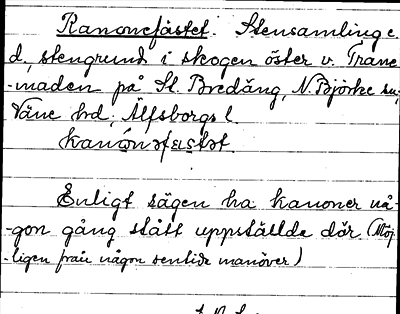 Kanonefästet. Stensamling e.
d., stengrund i skogen öster v. Trane
-maden på St. Bredäng, N. Björke sn,
Väne hd, Älfsborgs l.
kanónəfɛstət.
Enligt sägen ha kanoner nå-
-gon gång stått uppställda där. (Möj
-ligen från någon sentida manöver)